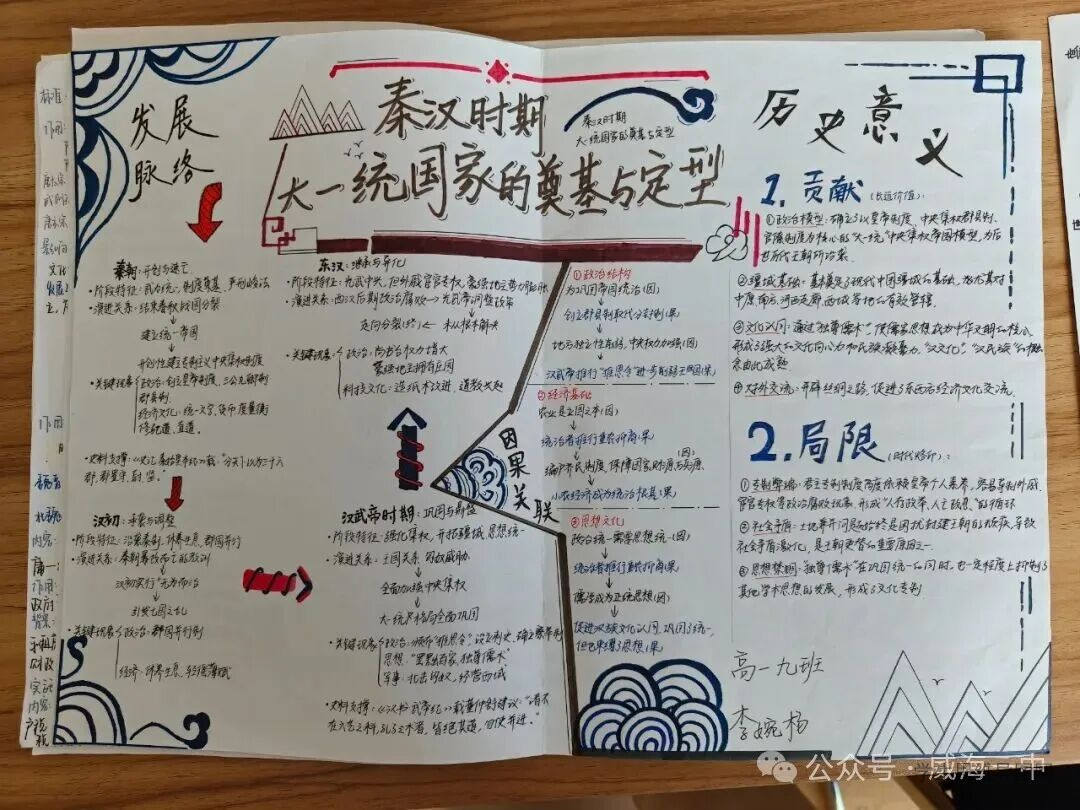 秦汉时期
大一统国家的奠基与定型
秦汉时期
大一统国家的奠基与定型
发展
脉络
秦朝：开创与速亡
·阶段特征：武力统一，制度奠基，严刑峻法
·演进关系：结束春秋战国分裂
建立统一帝国
开创性建立专制主义中央集权制度
·关键现象
政治：创立皇帝制度、三公九卿制
郡县制
经济文化：统一文字、货币、度量衡
修驰道、直道。
·史料支撑：《史记·秦始皇本纪》载：“分天下以为三十六
郡，郡置守、尉、监。”
汉初：承袭与调整
·阶段特征：沿袭秦制，休养生息，郡国并行
·演进关系：秦朝暴政而亡的教训
汉初实行“无为而治”
引发七国之乱
·关键现象
政治：郡国并行制
经济：休养生息，轻徭薄赋
东汉：继承与异化
·阶段特征：光武中兴，但外戚宦官专权，豪强地主势力膨胀
·演进关系：西汉后期政治腐败→光武帝调整政策
走向分裂
未从根本解决
·关键现象
政治：尚书台权力增大
豪强地主拥有庄园
科技文化：造纸术改进，道教兴起
汉武帝时期：巩固与鼎盛
·阶段特征：强化集权，开拓疆域，思想统一
·演进关系：王国关系 匈奴威胁
全面加强中央集权
大一统格局全面巩固
·关键现象
政治：颁布“推恩令”，设立刺史，确立察举制
思想：“罢黜百家，独尊儒术”
军事：北击匈奴，经营西域
·史料支撑：《汉书·武帝纪》载董仲舒建议：“诸不
在六艺之科，孔子之术者，皆绝其道，勿使并进。”
因果
关联
①政治结构
为巩固帝国统治(因)
创立郡县制取代分封制(果)
地方独立性削弱，中央权力加强(因)
汉武帝推行“推恩令”进一步削弱王国(果)
②经济基础
农业是立国之本(因)
统治者推行重农抑商(果)
(因)
编户齐民制度，保障国家赋役与兵源
小农经济成为统治根基(果)
③思想文化
政治统一需学思想统一(因)
统治者推行重农抑商(果)
儒学成为正统思想(因)
促进汉族文化认同，巩固了统一，
但也束缚了思想(果)
历史意义
1.贡献(长远价值)：
①政治模型：确立了以皇帝制度、中央集权郡县制、
官僚制度为核心的“大一统”中央集权帝国模型，为后
世历代王朝所沿袭。
②疆域基础：基本奠定了现代中国疆域的基础，尤其对
中原、南方、河西走廊、西域等地的有效管辖。
③文化认同：通过“独尊儒术”使儒家思想成为中华文明的核心，
形成了强大的文化向心力和民族凝聚力。“汉文化”、“汉民族”的概
念由此成熟
④对外交流：开辟丝绸之路，促进了东西方经济文化交流。
2.局限(时代烙印)：
①专制弊端：君主专制制度高度依赖皇帝个人素养，容易导致外戚、
宦官专权等政治腐败现象，形成“人存政举，人亡政息”的循环
②社会矛盾：土地兼并问题始终是困扰封建王朝的顽疾，导致
社会矛盾激化，是王朝更替的重要原因之一
③思想禁锢：“独尊儒术”在巩固统一的同时，也一定程度上抑制了
其他学术思想的发展，形成了文化专制
高一九班
李婉杨
公众号·威海一中